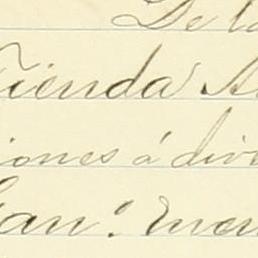 De la
Tienda A
iones á dive
an.º mer